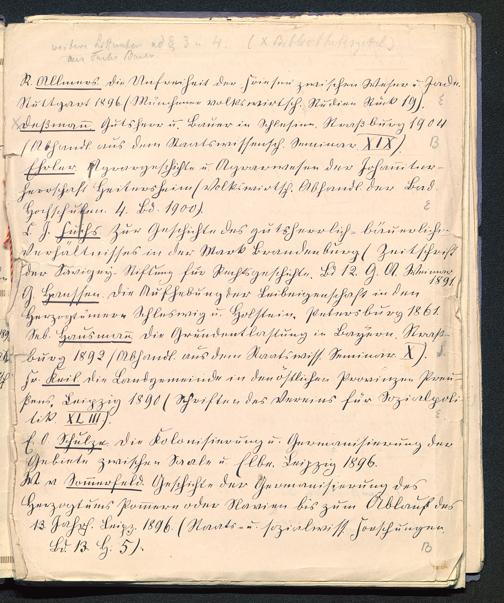 weitere Literatur ad § 3 u. 4. (X Bibliothekszettel)
aus Fuchs Bauer
R. Allmers. die Unfreiheit der Friesen zwischen Weser u. Jade.
Stuttgart 1896 (Münchener volkswirtsch. Studien Stück 19). E
X Deßmann Gutsherr u. Bauer in Livland. Straßburg 1904
(Abhandl aus dem Staatswissensch. Seminar XIX). B
Ehrler Agrargeschichte u Agrarwesen der Johanniter-
herrschaft Heitersheim (Volkswirtsch. Abhandl der Bad.
Hochschulen. 4. Bd. 1900). E
C J. Fuchs Zur Geschichte des gutsherrlich-bäuerlichen
Verhältnisses in der Mark Brandenburg (Zeitschrift
der Savigny-Stiftung für Rechtsgeschichte. Bd 12. G. A. Weimar
1891
G. Hanssen. Die Aufhebung der Leibeigenschaft in den
Herzogtümern Schleswig u. Holstein. Petersburg 1861.
Seb. Hausmann die Grundentlastung in Bayern. Straß-
burg 1892 (Abhandl aus dem Staatswiss Seminar X).
Fr. Keil die Landgemeinde in den östlichen Provinzen Preu
ßens. Leipzig 1890 (Schriften des Vereins für Sozialpoli
tik XLIII). E
E. O Schulze. die Kolonisierung u. Germanisierung der
Gebiete zwischen Saale u Elbe. Leipzig 1896.
W v Sommerfeld. Geschichte der Germanisierung des
Herzogtums Pommern oder Slavien bis zum Ablauf des
13 Jahrh. Leipz. 1896. (Staats- u. sozialwiss. Forschungen.
Bd. 13 H. 5). B